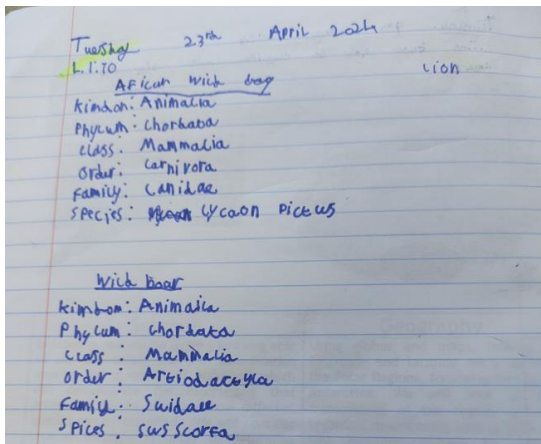 Tuesday 23rd April 2024
L.I.TO Lion
African Wild Dog
Kimdon: Animalia
Phylum: Chordata
Class: Mammalia
Order: Carnivora
Family: Canidae
Species: Lycaon Pictus
Wild boar
Kimdom: Animalia
Phylum: Chordata
Class: Mammalia
Order: Artiodactyla
Family: Suidae
Spices: Sus Scorfa